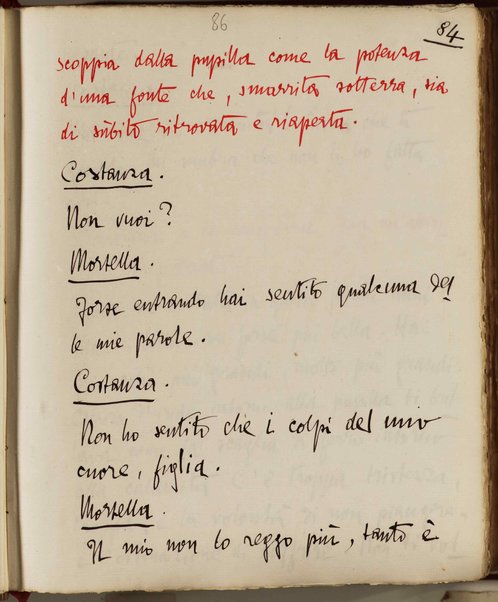 86
84
scoppia dalla pupilla come la potenza
d'una fonte che, smarrita sotterra, sia
di sùbito ritrovata e riaperta.
Costanza.
Non vuoi?
Mortella.
Forse entrando hai sentito qualcuna del
le mie parole.
Costanza.
Non ho sentito che i colpi del mio
cuore, figlia.
Mortella.
Il mio non lo reggo più, tanto è